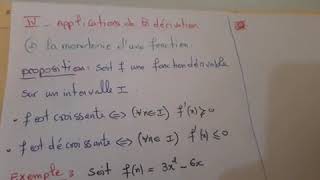 IV - Applications de la dérivation
a) la monotonie d'une fonction.
proposition: soit f une fonction dérivable
sur un intervalle I.
• f est croissante ⟺ (∀x∈I) f'(x) ≥ 0
• f est décroissante ⟺ (∀x∈I) f'(x) ≤ 0
Exemple : Soit f(x) = 3x² - 6x